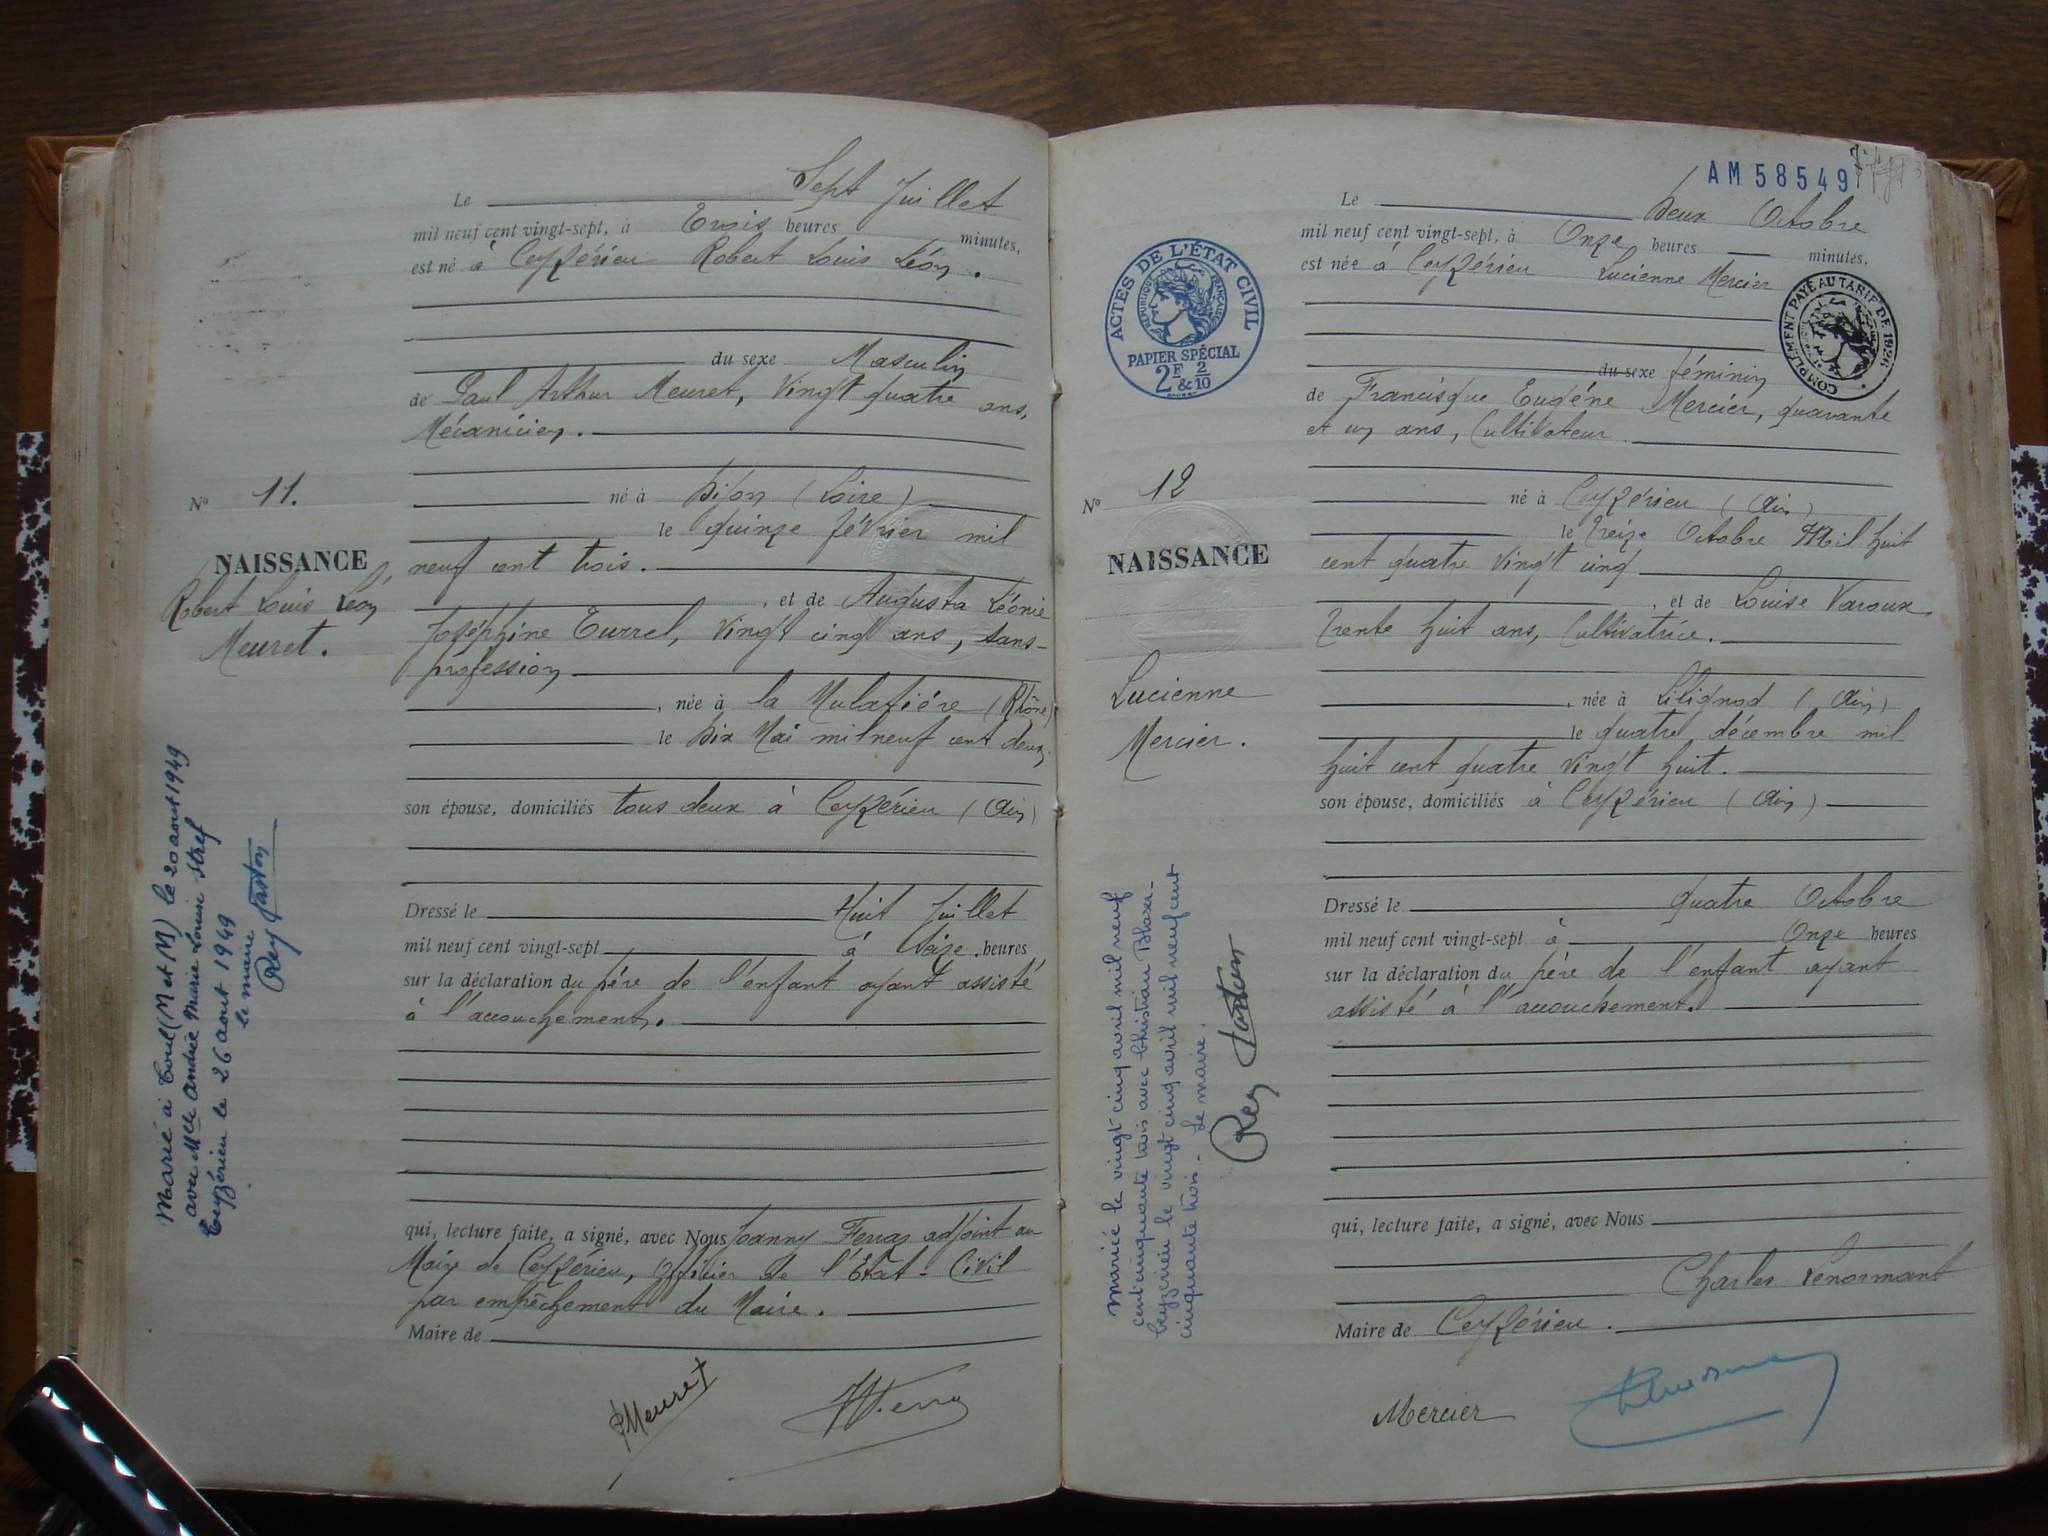 Le Sept Juillet
mil neuf cent vingt-sept, à Trois heures minutes,
est né à Ceyzérieu Robert Louis Léon.
du sexe Masculin
de Paul Arthur Meuret, Vingt quatre ans,
Mécanicien.
né à Dijon (Loire)
le quinze février mil
neuf cent trois.
, et de Augusta Léonie
Joséphine Turrel, Vingt cinq ans, sans-
profession
, née à la Mulatière (Rhône)
le Dix Mai mil neuf cent deux,
son épouse, domiciliés tous deux à Ceyzérieu (Ain)
Dressé le Huit Juillet
mil neuf cent vingt-sept à heures
sur la déclaration du père de l'enfant ayant assisté
à l'accouchement.
qui, lecture faite, a signé, avec Nous Joanny adjoint au
Maire de Ceyzérieu, Officier de l'État-Civil
par empêchement du Maire.
Maire de
PMeuret
No 11.
NAISSANCE
Robert Louis Léon
Meuret.
Marié à Toul (M et M) le 20 aout 1949
avec Mlle Andrée Marie Louise
Ceyzérieu le 26 aout 1949
le maire
Rey Gaston
AM 58549
Le Deux Octobre
mil neuf cent vingt-sept, à Onze heures minutes,
est née à Ceyzérieu Lucienne Mercier
du sexe féminin
de Francisque Eugène Mercier, quarante
et un ans, Cultivateur
né à Ceyzérieu (Ain)
le Treize Octobre Mil huit
cent quatre Vingt cinq
, et de Louise Varoux
Trente huit ans, Cultivatrice.
, née à Lilignod (Ain)
le quatre décembre mil
huit cent quatre Vingt huit.
son épouse, domiciliés à Ceyzérieu (Ain)
Dressé le quatre Octobre
mil neuf cent vingt-sept à Onze heures
sur la déclaration du père de l'enfant ayant
assisté à l'accouchement.
qui, lecture faite, a signé, avec Nous
Charles Lenormant
Maire de Ceyzérieu.
Mercier
ACTES DE L'ÉTAT CIVIL
RÉPUBLIQUE FRANÇAISE
PAPIER SPÉCIAL
2F & 2/10
COMPLÉMENT PAYÉ AU TARIF DE
No 12
NAISSANCE
Lucienne
Mercier.
Mariée le vingt cinq avril mil neuf
cent cinquante trois avec Christian
Ceyzérieu le vingt cinq avril mil neuf cent
cinquante trois - Le maire.
Rey Gaston